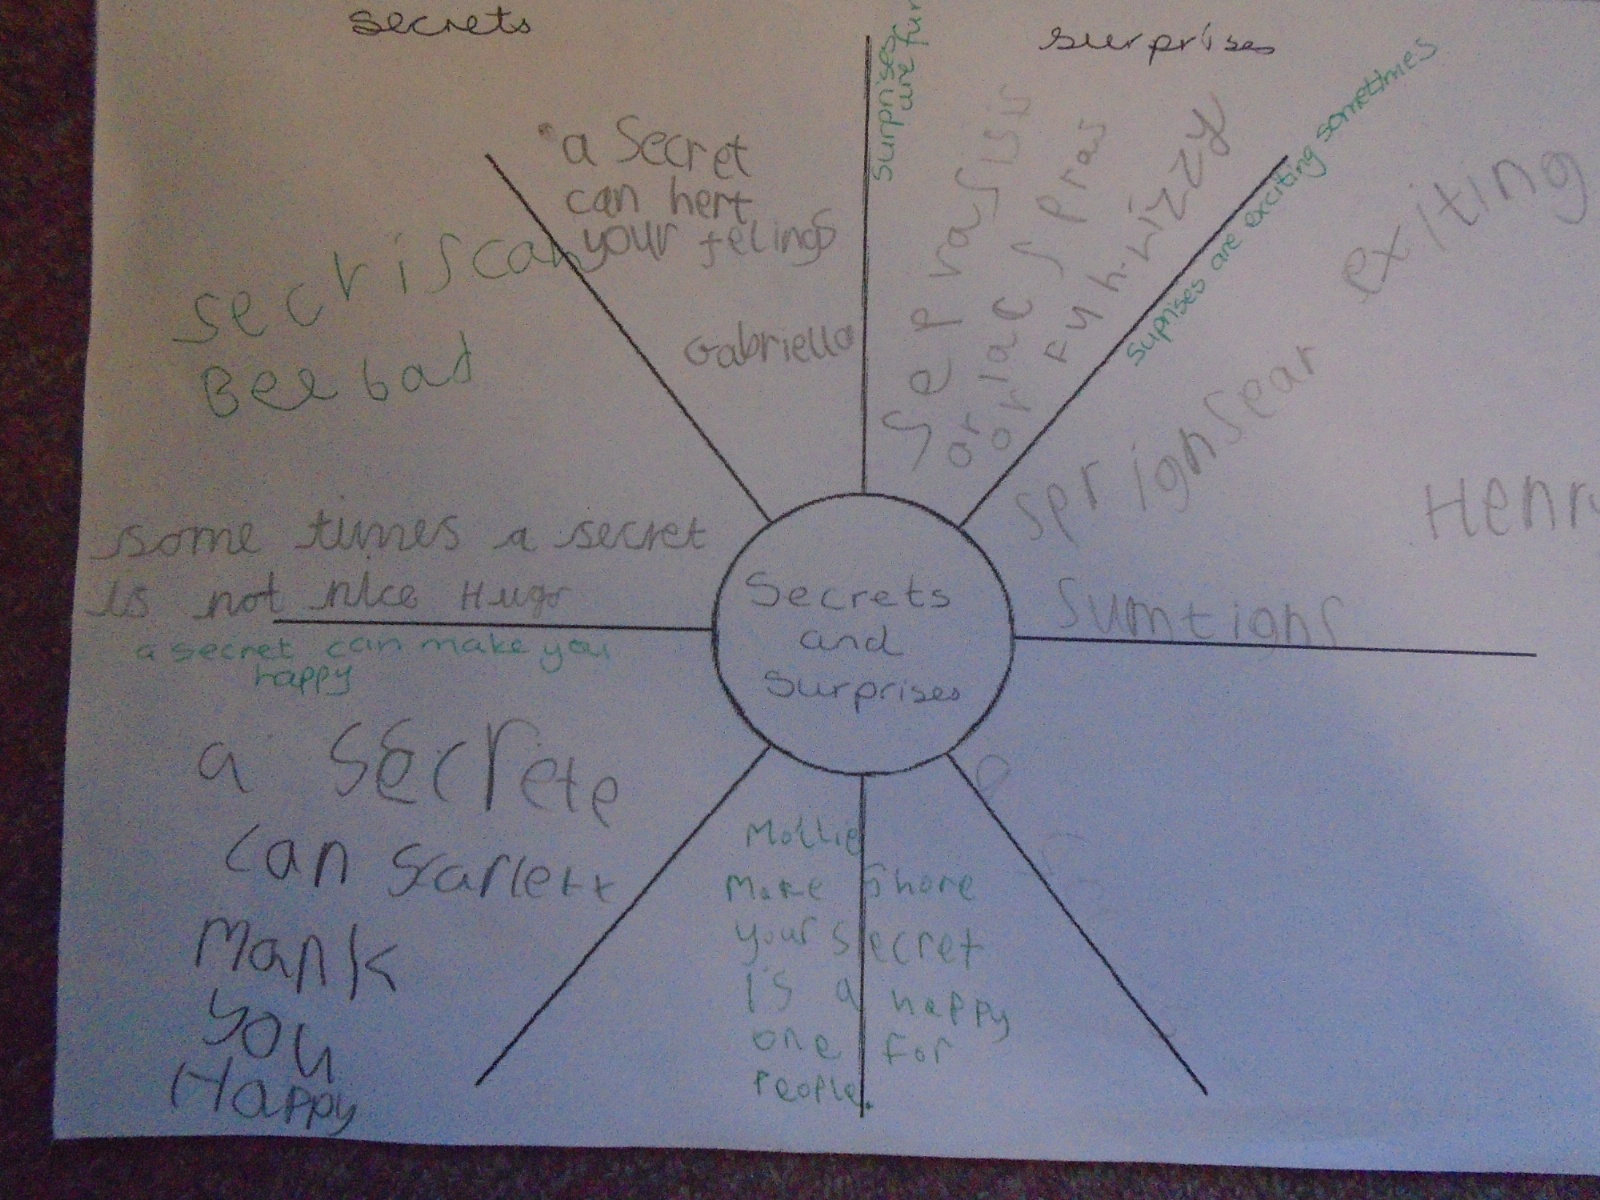 secrets
surprises
a Secret
can hert
your felings
Gabriella
surprises
are fun
exiting
suprises are exciting sometimes
Henry
sumtighs
secriscan
Bee bad
some times a secret
is not nice Hugo
a secret can make you
happy
a secrete
can Scarlett
mank
you
Happy
Secrets
and
Surprises
Mollie
Make Shore
your secret
is a happy
one for
People.